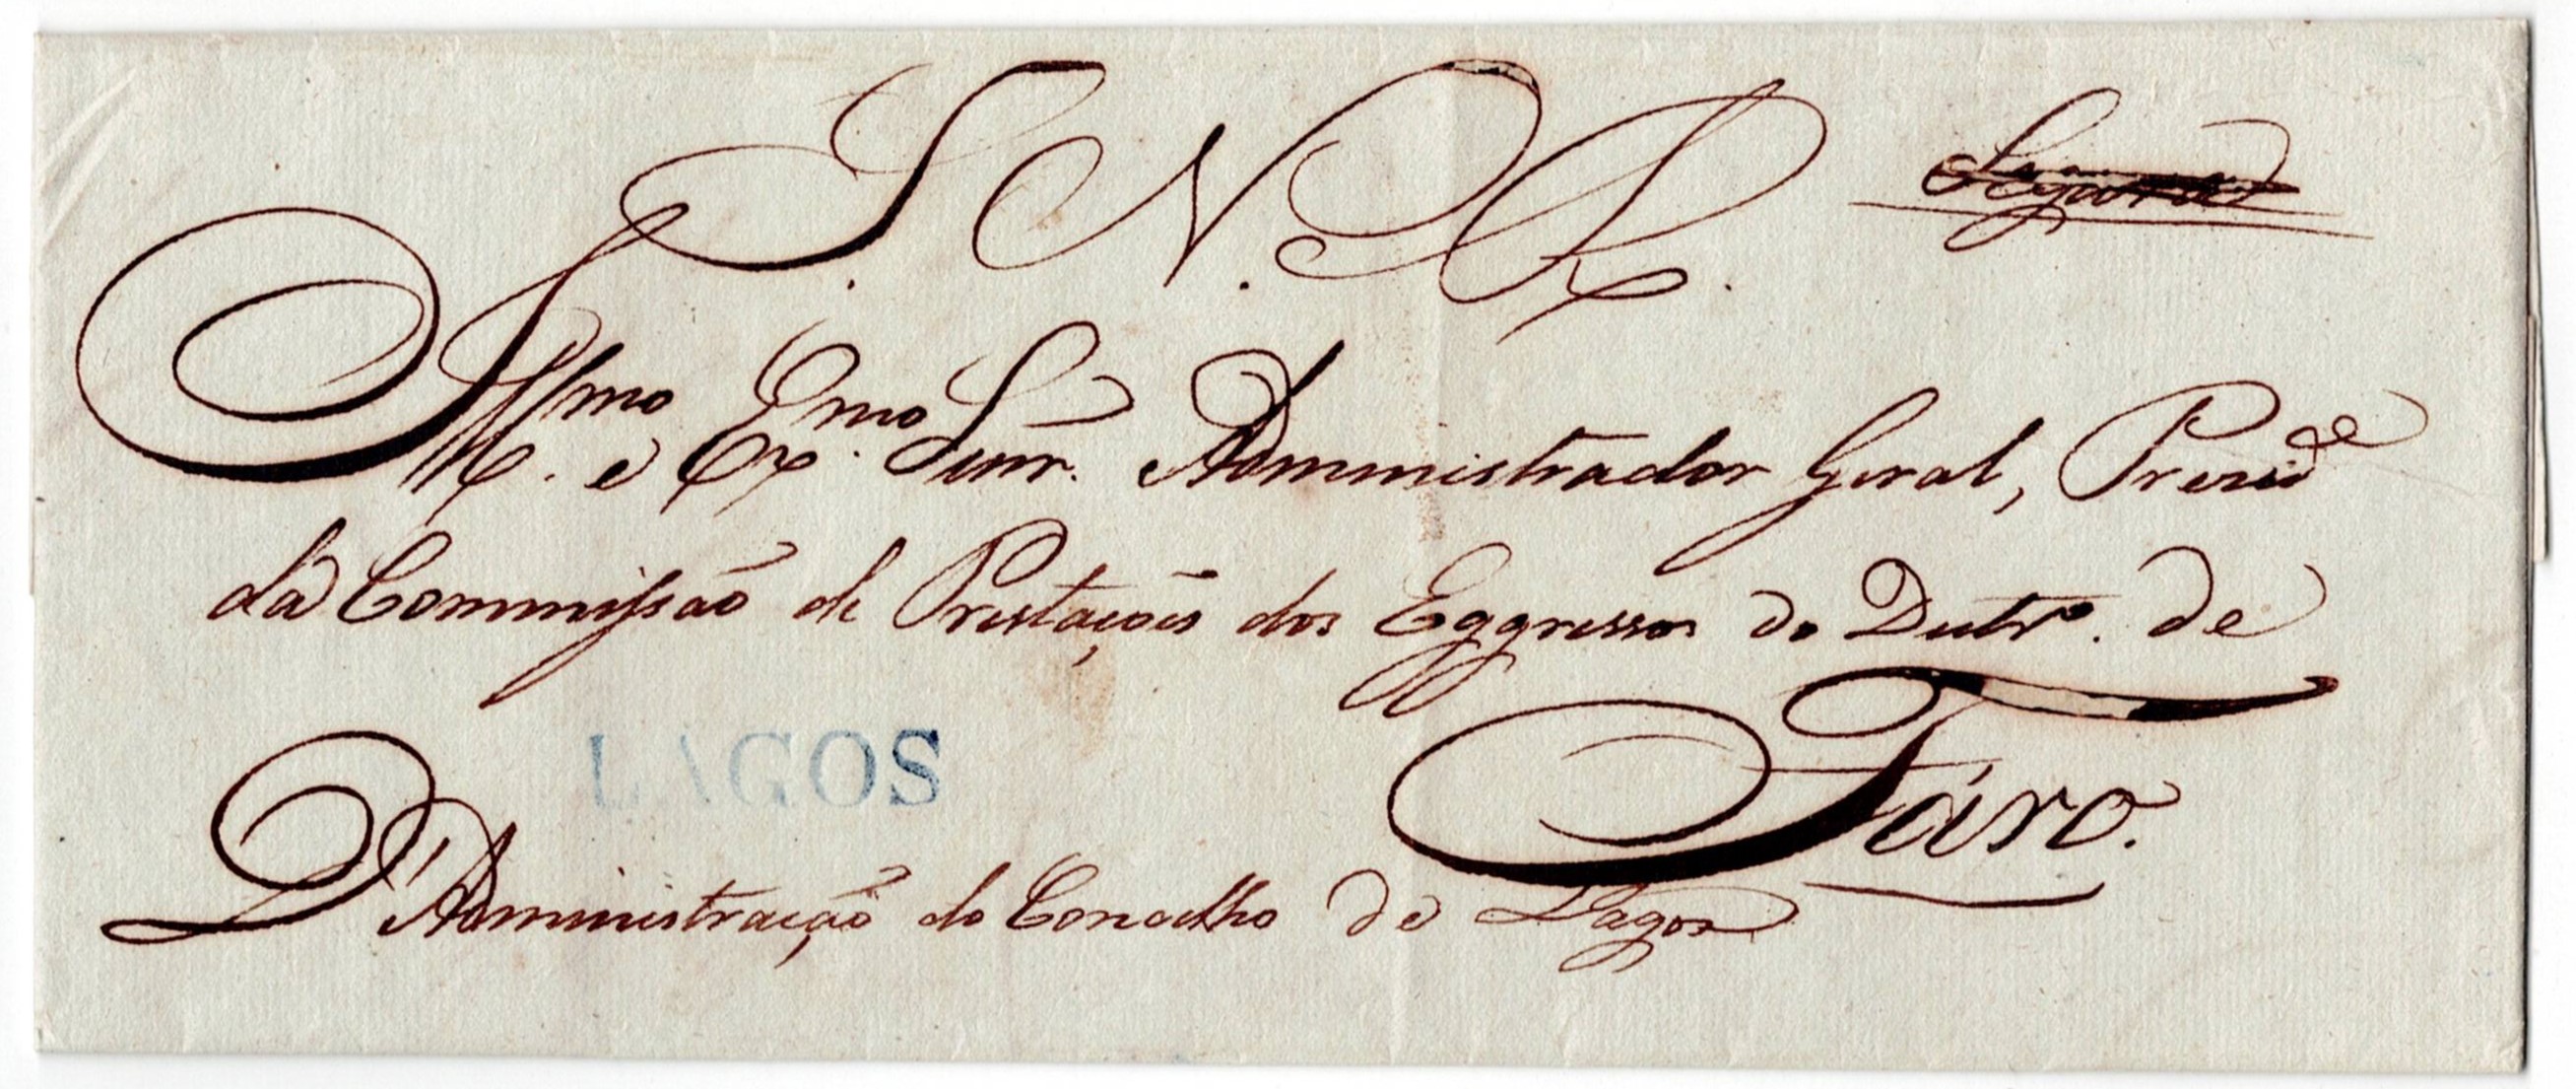 S. N. R.
Segura
Illmo. e Exmo. Senr. Administrador Geral, Preside
da Commissão de Prestações dos Eggressos do Distro. de
Fáro.
LAGOS
D'Administração do Concelho de Lagos